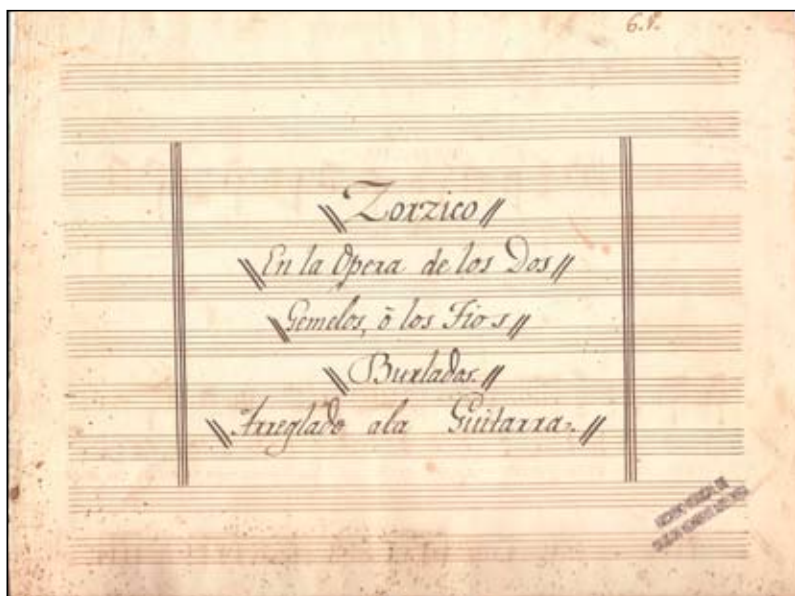 6.
Zorzico
En la Opera de los Dos
Gemelos, ō los Tios
Burlados.
Arreglado ala Guitarra.